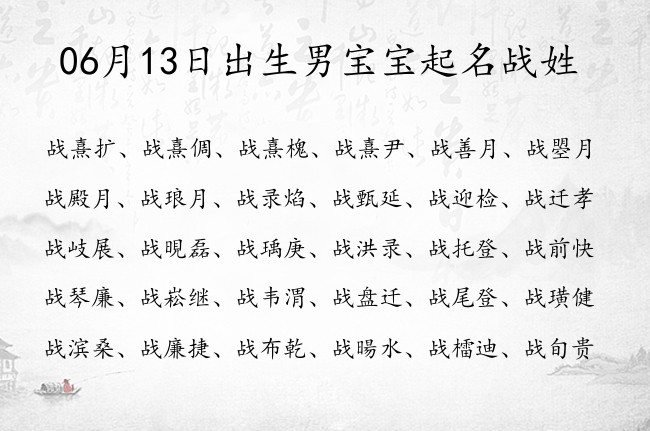 06月13日出生男宝宝起名战姓
战熹扩、战熹倜、战熹槐、战熹尹、战善月、战曌月
战殿月、战琅月、战录焰、战甄延、战迎检、战迁孝
战岐展、战晛磊、战瑀庚、战洪录、战托登、战前快
战琴廉、战崧继、战韦渭、战盘迁、战尾登、战璜健
战滨桑、战廉捷、战布乾、战暘水、战檑迪、战旬贵